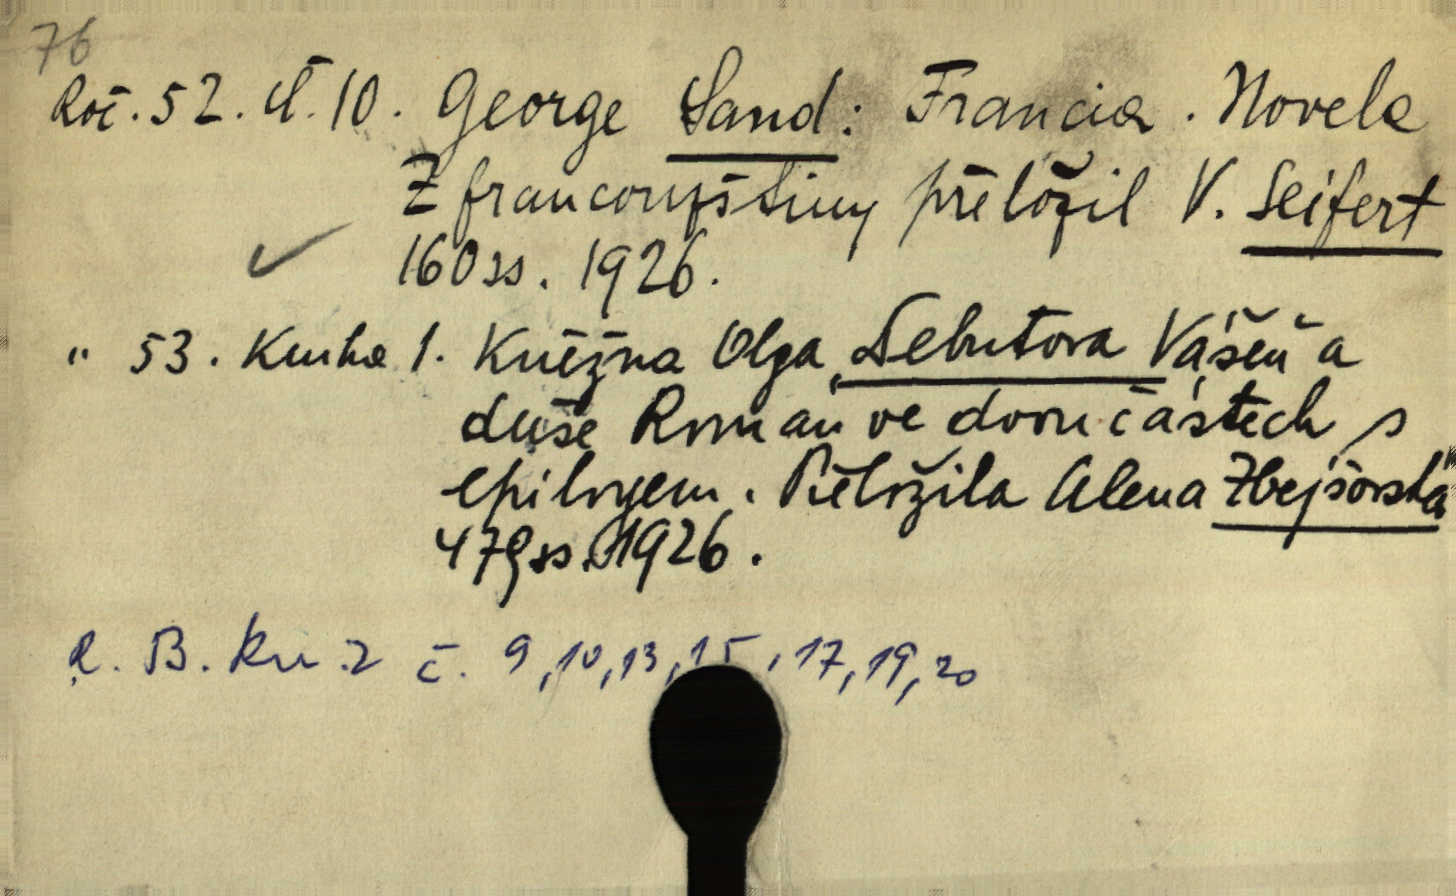 76
Roč. 52. č. 10. George Sand: Francia. Novela
Z francouzštiny přeložil V. Seifert
160 ss. 1926.
" 53. Kniha 1. Kněžna Olga Vášeň a
duše Román ve dvou částech s
epilogem. Přeložila Alena
479 ss. 1926.
R. B. č. 9, 10, 13, 15, 17, 19, 20